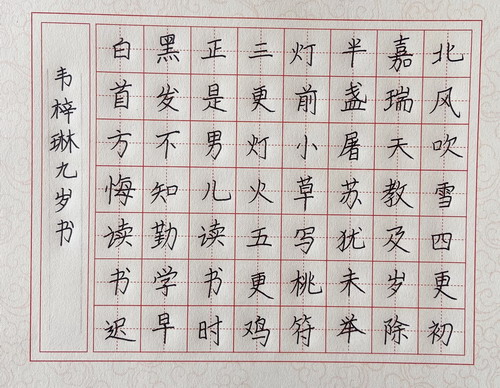 北风吹雪四更初
嘉瑞天教及岁除
半盏屠苏犹未举
灯前小草写桃符
三更灯火五更鸡
正是男儿读书时
黑发不知勤学早
白首方悔读书迟
韦梓琳九岁书